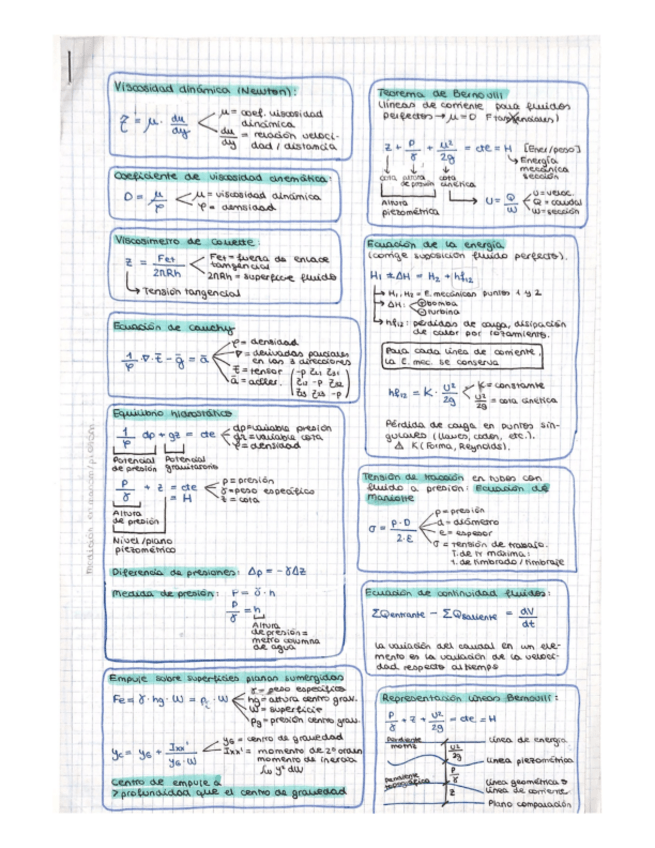 Viscosidad dinámica (Newton):
τ = μ · du/dy
μ = coef. viscosidad
dinámica
du/dy = relación veloci-
dad / distancia
Coeficiente de viscosidad cinemática:
υ = μ/φ
μ = viscosidad dinámica
φ = densidad
Viscosimetro de couette:
τ = Fet/2πRh
Fet = fuerza de enlace
tangencial
2πRh = superficie fluido
Tensión tangencial
Ecuación de cauchy
1/φ · ∇ · t̿ - ḡ = ā
φ = densidad
∇ = derivadas parciales
en las 3 direcciones
t̿ = tensor
ā = aceler.
(-p τ21 τ31
τ12 -p τ32
τ13 τ23 -p)
Equilibrio hidrostático
1/φ dp + gz = cte
dp = variable presión
dz = variable cota
φ = densidad
Potencial de presión
Potencial gravitatorio
P/γ + z = cte
= H
p = presión
γ = peso específico
z = cota
Altura
de presión
Nivel/plano
piezométrico
Diferencia de presiones: Δp = -γΔz
Medida de presión: P = γ · h
P/γ = h
Altura
de presión =
metro columna
de agua
Empuje sobre superficies planas sumergidas
Fe = γ · hg · W = pg · W
γ = peso específico
hg = altura centro grav.
W = superficie
pg = presión centro grav.
yc = yG + Ixx'/yG · W
yG = centro de gravedad
Ixx' = momento de 2º orden
momento de inercia
∫w y² dW
Centro de empuje a
> profundidad que el centro de gravedad
Teorema de Bernouilli
(líneas de corriente para fluidos
perfectos → μ = 0
z + P/γ + u²/2g = cte = H [Ener/peso]
Energía
mecánica
sección
cota
altura de presión
cota cinética
Altura
piezométrica
U = Q/W
U = veloc.
Q = caudal
W = sección
Ecuación de la energía
(corrige suposición fluido perfecto).
H1 ± ΔH = H2 + hf12
H1, H2 = E. mecánica en puntos 1 y 2
ΔH: ⊕ bomba
⊖ turbina
hf12: pérdidas de carga, disipación
de calor por rozamiento.
Para cada línea de corriente,
la E. mec. se conserva
hf12 = K · U²/2g
K = constante
U²/2g = cota cinética
Pérdida de carga en puntos sin-
gulares (llaves, codos, etc.).
⚠ K (Forma, Reynolds).
Tensión de tracción en tubos con
fluido a presión: Ecuación de
Mariotte
σ = P · D/2 · E
p = presión
d = diámetro
e = espesor
σ = tensión de trabajo.
T. de tr máxima:
t. de timbrado / timbraje
Ecuación de continuidad fluidos:
ΣQentrante - ΣQsaliente = dV/dt
la variación del caudal en un ele-
mento es la variación de la veloci-
dad respecto al tiempo
Representación líneas Bernouilli:
P/γ + z + U²/2g = cte = H
Pendiente
motriz
U²/2g
Línea de energía
Línea piezométrica
Pendiente
P/γ
z
Línea geométrica o
línea de corriente
Plano comparación